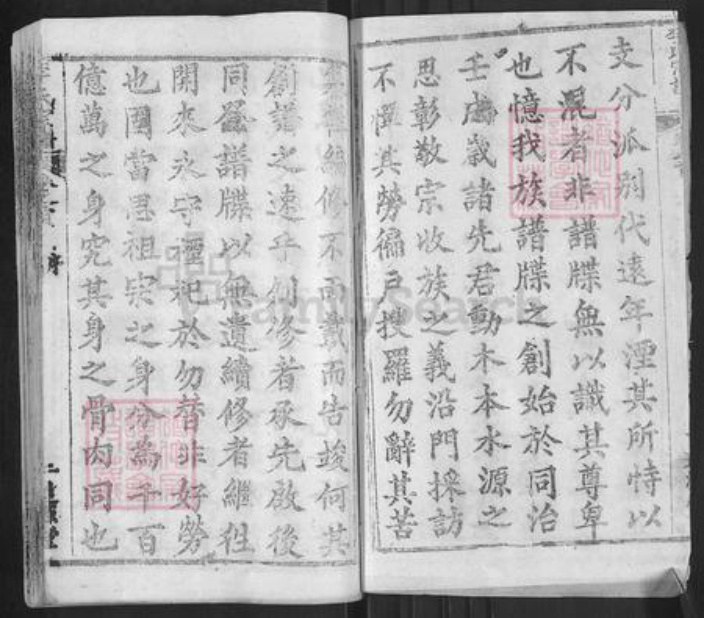 支分派別代遠年湮其所恃以
不混者非譜牒無以識其尊卑
也憶我族譜牒之創始於同治
壬戌歲諸先君動木本水源之
思彰敬宗收族之義沿門採訪
不憚其勞徧戶搜羅勿辭其苦
編修不兩載而告竣何其
創譜之速乎創修者承先啟後
同登譜牒以無遺續修者繼徃
開來永守禋祀於勿替非好勞
也國當思祖宗之身分為千百
億萬之身究其身之骨肉同也
FamilySearch